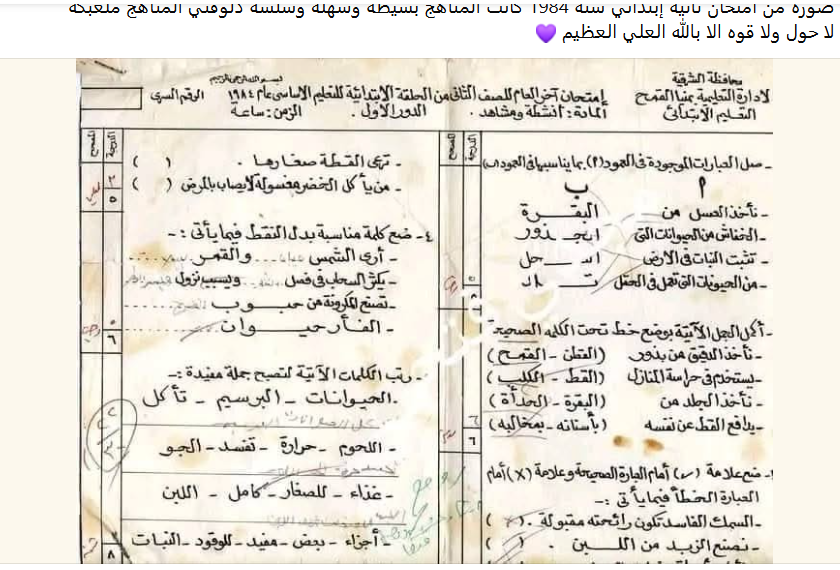 صورة من امتحان تانية إبتدائي سنة 1984 كانت المناهج بسيطة وسهلة وسلسة دلوقتي المناهج ملعبكة
لا حول ولا قوه الا بالله العلي العظيم 💜
محافظة الشرقية
لادارة التعليمية بمنيا القمح
التعليم الابتدائى
بسم الله الرحمن الرحيم
إمتحان آخر العام للصف الثانى من الحلقة الابتدائية للتعليم الاساسى عام ١٩٨٤
الرقم السرى
المادة: أنشطة ومشاهد .
الدور الأول .
الزمن: ساعة
الدرجة
المصحح
ـ صل العبارات الموجودة فى العمود (أ) بما يناسبها فى العمود (ب)
أ
ب
ـ نأخذ العسل من
البقرة
ـ الخفاش من الحيوانات التى
الجـذور
ـ تثبت النبات فى الأرض
ـ من الحيونات التى تعمل فى الحقل
ـ أكمل الجمل الآتية بوضع خط تحت الكلمه الصحيحة
ـ نأخذ الدقيق من بذور (القطن ـ القمح)
ـ يستخدم فى حراسة المنازل (القط ـ الكلب)
ـ نأخذ الجلد من (البقرة ـ الحدأة)
ـ يدافع القط عن نفسه (بأسنانه ـ بمخالبه)
ـ ضع علامة (√) أمام العبارة الصحيحة وعلامة (X) أمام
العبارة الخطأ فيما يأتى :ـ
ـ السمك الفاسد تكون رائحته مقبولة . ( )
ـ نصنع الزبد من اللـبن . ( )
الدرجة
المصحح
ـ ترى القطة صغارها . ( )
ـ من يأكل الخضر مغسولة لا يصاب بالمرض ( )
٤ـ ضع كلمة مناسبة بدل النقط فيما يأتى :ـ
ـ أرى الشمس ...... والقمر ......
ـ يكثر السحاب فى فصل ...... ويسبب نزول
ـ تصنع المكرونة من حبـوب
ـ الفـأر حيـوان ......
ـ رتب الكلمات الآتية لتصبح جملة مفيدة :ـ
ـ الحيوانات ـ البرسيم ـ تأكل
ـ اللحوم ـ حرارة ـ تفسد ـ الجو
ـ غذاء ـ للصغار ـ كامل ـ اللبن
ـ أجزاء ـ بعض ـ مفيد ـ للوقود ـ النبات